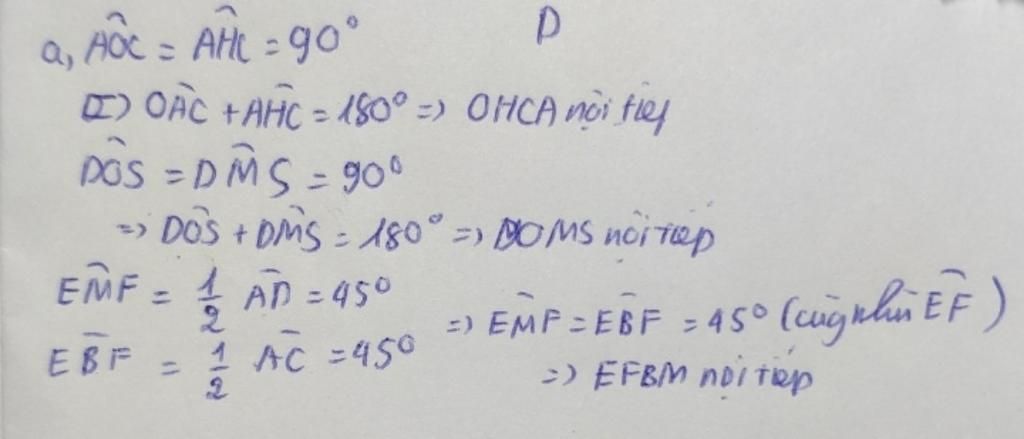 D
a, AÔC = AĤC = 90°
=> OÂC + AĤC = 180° => OHCA nội tiếp
DÔS = DM̂S = 90°
=> DÔS + DM̂S = 180° => DOMS nội tiếp
EM̂F = 1/2 AD = 45°
EB̂F = 1/2 AC = 45°
=> EM̂F = EB̂F = 45° (cùng nhìn EF)
=> EFBM nội tiếp